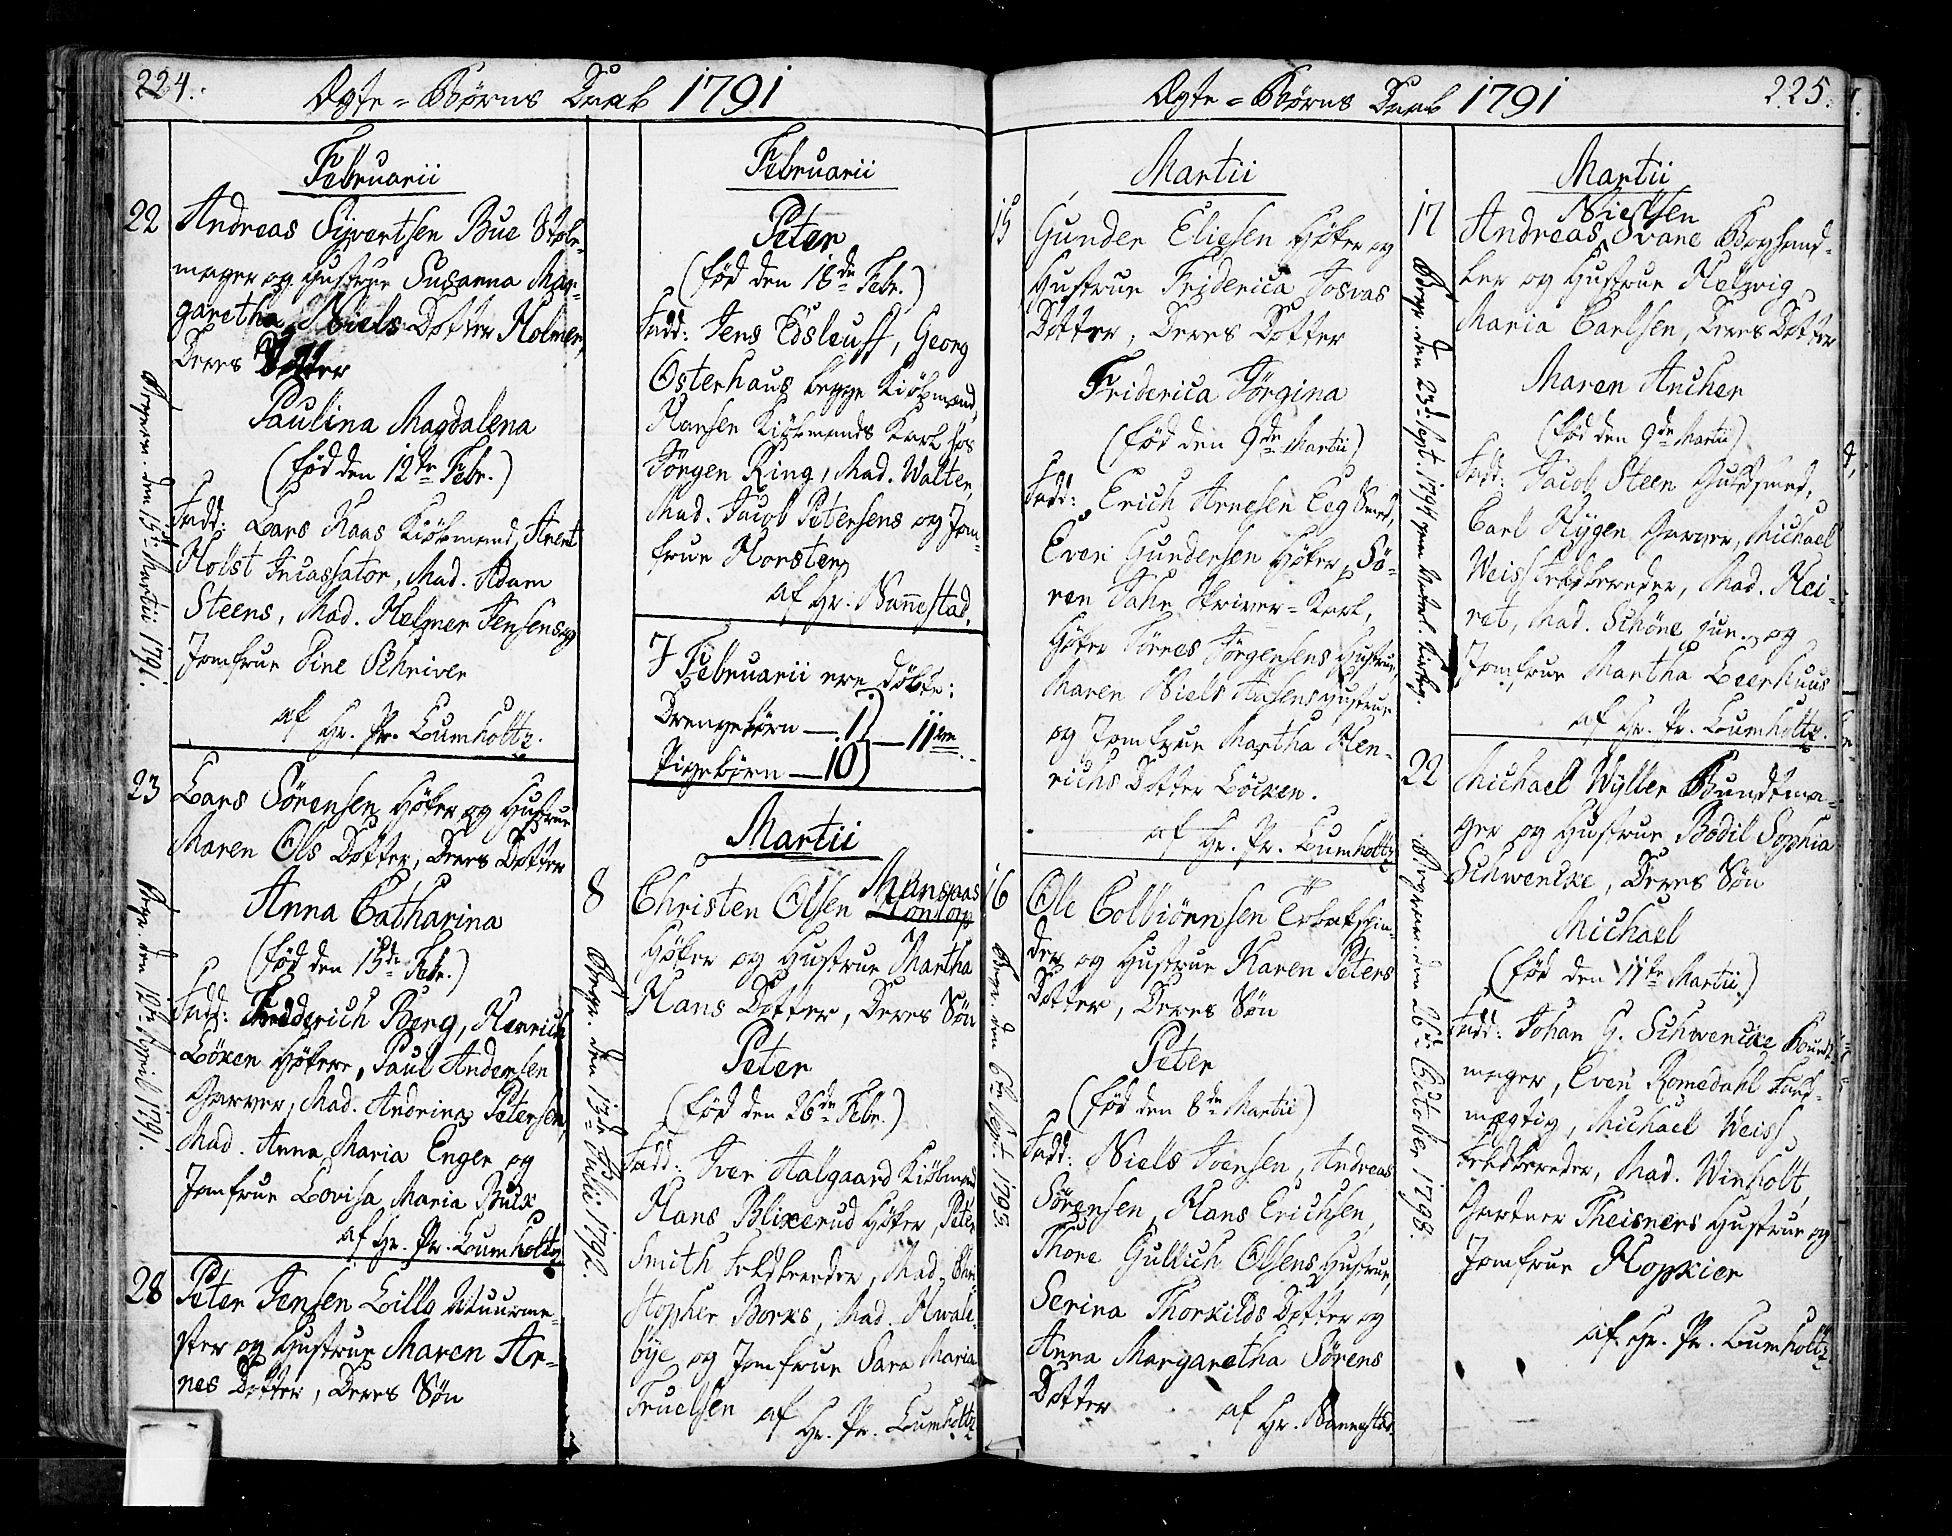 224.
Ægte = Børns Daab 1791
Februarii
22
Andreas Sivertsen Bue Stole-
mager og Hustrue Susanna Mar-
garetha Niels Dotter Holmer,
Deres Dotter
Paulina Magdalena
(fød den 12te Febr.)
Fadd: Lars Haas Kiöbmand, Arent
Holst Incassator, Mad. Adam
Steens, Mad. Helmer Jensens og
Jomfrue Sine Schriver
af Hr. Pr. Lumholtz.
Begrav. den 15de Martii 1791.
23
Lars Sörensen Höker og Hustrue
Maren Ols Dotter, Deres Dotter
Anna Catharina
(fød den 15de Febr.)
Fadd: Friderich Berg, Henrich
Löxen Hökere, Paul Andersen
Garver, Mad. Andrina Petersen,
Mad. Anna Maria Enger og
Jomfrue Lovisa Maria Buck
af Hr. Pr. Lumholtz
Begr. den 12te April 1791.
28
Peter Jensen Lille Muurme-
ster og Hustrue Maren Ar-
nes Dotter, Deres Søn
Februarii
Peter
(fød den 18de Febr.)
Fadd: Jens Edsleuff, Georg
Osterhaus begge Kiöbmænd,
Hansen Kiöbmands Karl hos
Jörgen Ring, Mad. Walter,
Mad. Jacob Petersens og Jom-
frue Horster
af Hr. Nannestad.
I Februarii ere døbte:
Drengebørn — 1
Pigebørn — 10
— 11ve
Martii
8
Christen Olsen Hontorp Mansaas
Höker og Hustrue Martha
Hans Dotter, Deres Søn
Peter
(fød den 26de Febr.)
Fadd: Iver Aalgaard Kiöbmand
Hans Blixerud Höker, Peter
Smith Feldbereder, Mad. Chri-
stopher Borks, Mad. Hwale-
bye og Jomfrue Sara Maria
Truelsen
af Hr. Pr. Lumholtz
Begr. den 13de Julii 1792.
225.
Ægte = Børns Daab 1791
Martii
15
Gunder Eliesen Höker og
Hustrue Friderica Josvas
Dotter, Deres Dotter
Friderica Jörgina
(fød den 9de Martii)
Fadd: Erich Arnesen Eeg Smed,
Even Gundersen Höker, Sö-
ren Jahr Skriver-Karl,
Höker Törres Jörgensens Hustrue,
Maren Niels Aasens Hustrue
og Jomfrue Martha Hen-
richs Dotter Löcken.
af Hr. Pr. Lumholtz
16
Ole Colbiörnsen Tobakspin-
der og Hustrue Karen Peters
Dotter, Deres Søn
Peter
(fød den 8de Martii)
Fadd: Niels Ivensen, Andreas
Sörensen, Hans Erichsen,
Thore Gullich Olsens Hustrue,
Serina Thorkilds Dotter og
Anna Margaretha Sörens
Dotter
af Hr. Nannestad.
Begr. den 6te Sept. 1795.
Martii
17
Nielsen
Andreas Svane Boghand-
ler og Hustrue Helwig
Maria Carlsen, Deres Dotter
Maren Ancher
(fød den 9de Martii)
Fadd: Jacob Steen Guldsmed,
Carl Hygen Garver, Michael
Weiss Feldbereder, Mad. Hei-
ret, Mad. Schöne jun. og
Jomfrue Martha Leerhuus
af Hr. Pr. Lumholtz
Begr. den 23de Sept. 1794
22
Michael Wyller Bundtma-
ger og Hustrue Bodil Sophia
Schwencke, Deres Søn
Michael
(fød den 11te Martii)
Fadd: Johan G. Schwencke Bundt-
mager, Even Romedahl Fuld-
mægtig, Michael Weiss
Feldbereder, Mad. Winholt,
Gartner Theisners Hustrue og
Jomfrue Hopkier
af Hr. Pr. Lumholtz
Begrav. den 26de October 1798.